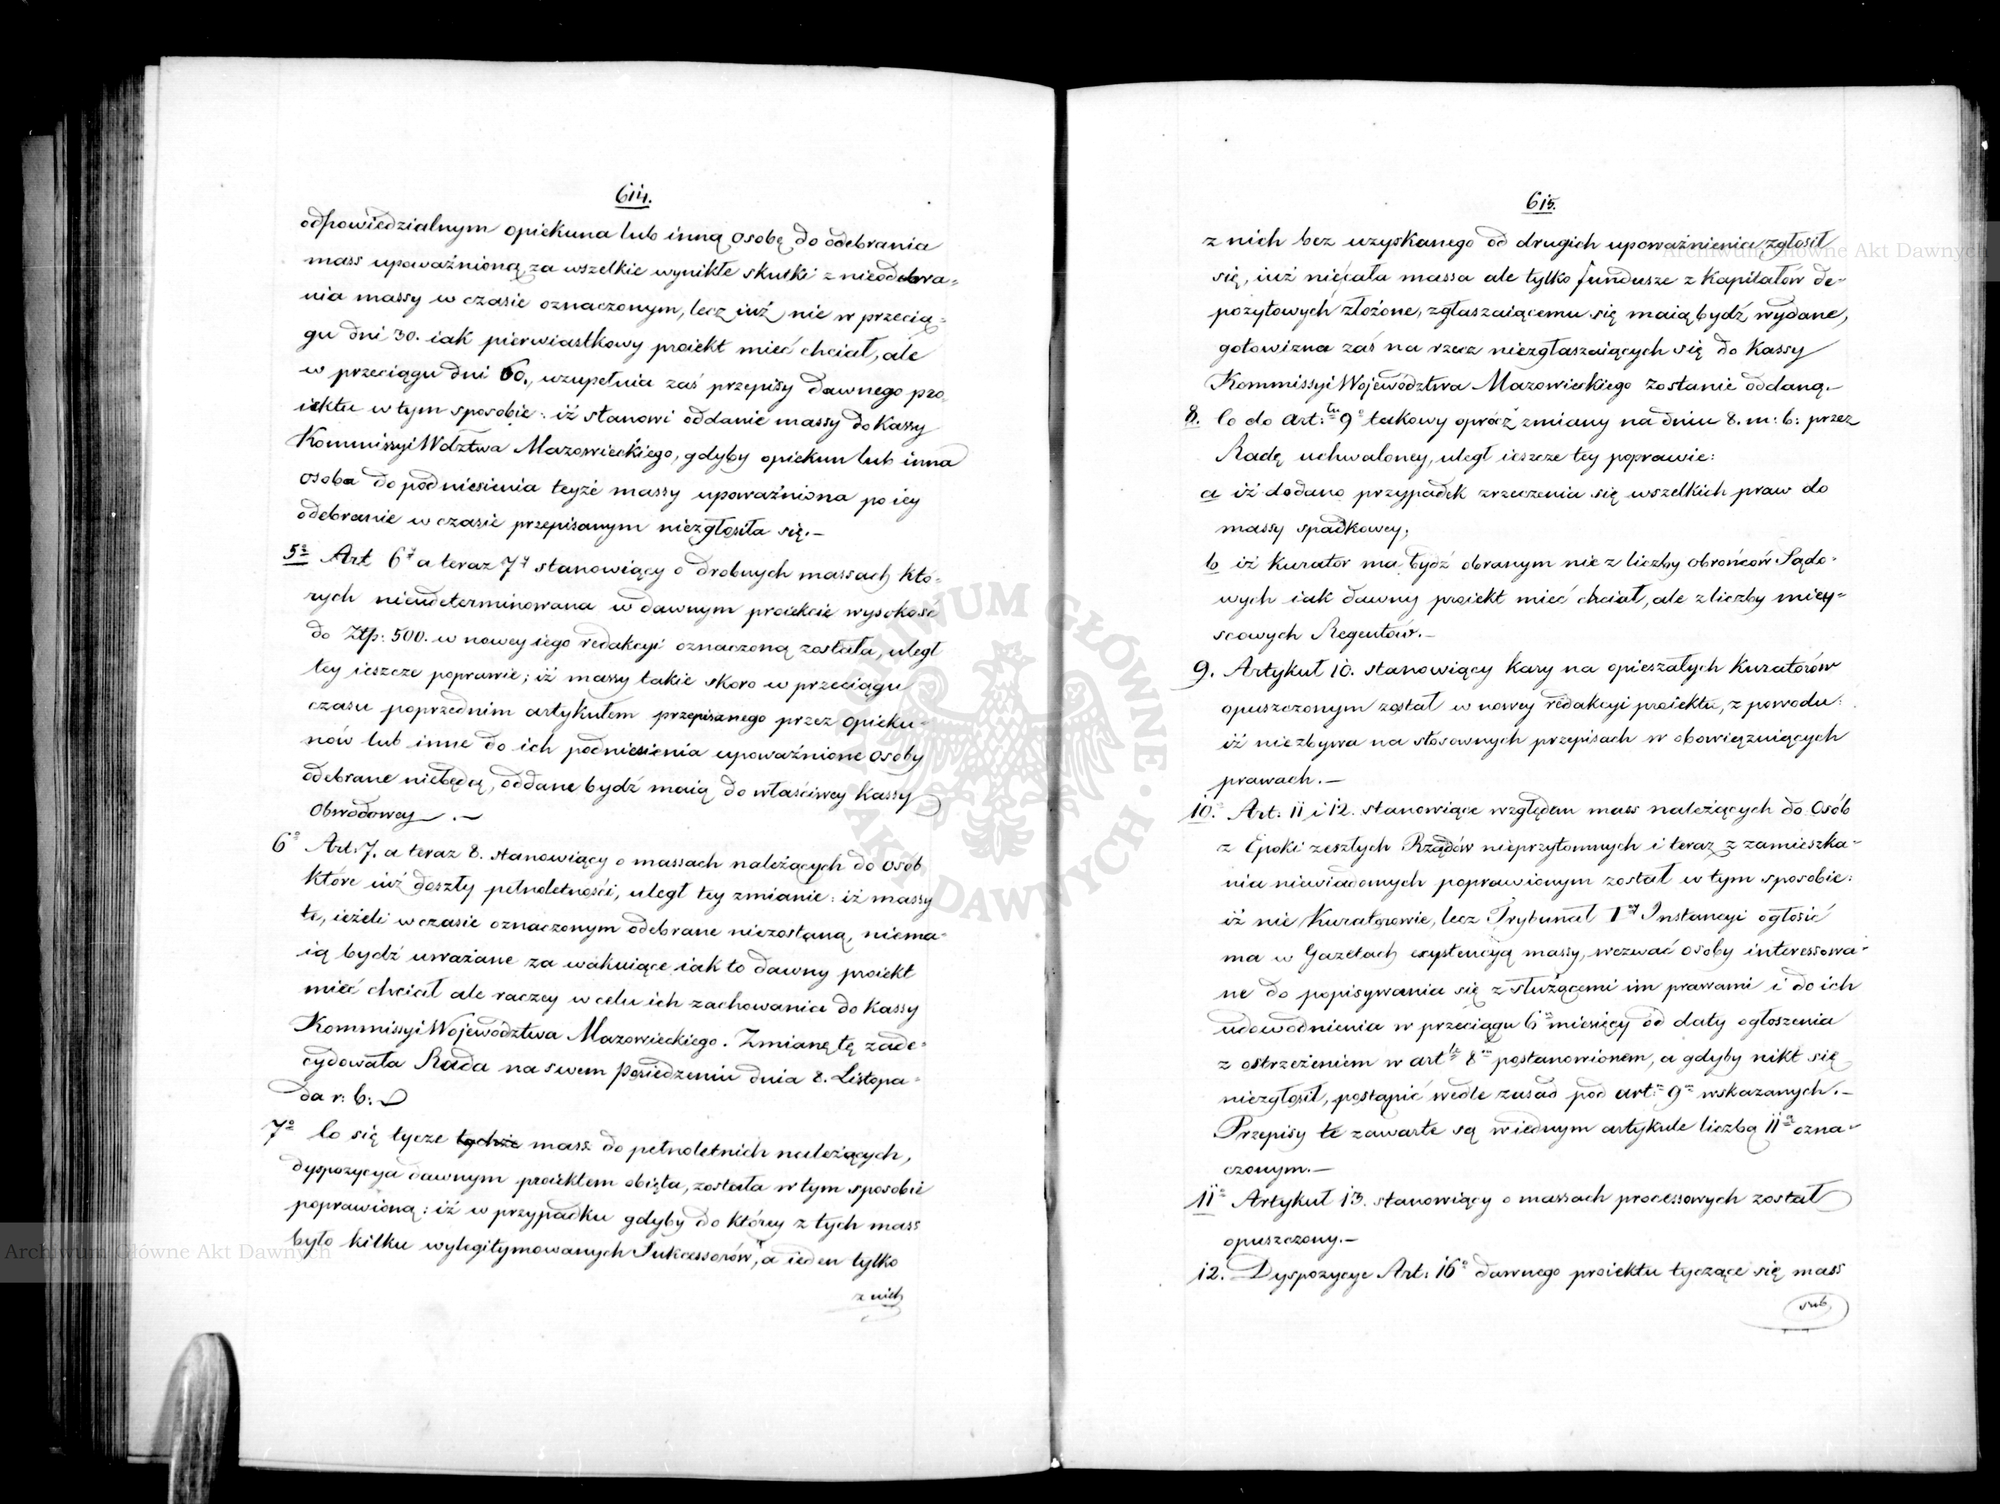 614.
odpowiedzialnym opiekuna lub inną osobę do odebrania
mass upoważnioną za wszelkie wynikłe skutki z nieodebra-
nia massy w czasie oznaczonym, lecz iuż nie w przecią-
gu dni 30. iak pierwiastkowy proiekt mieć chciał, ale
w przeciągu dni 60., uzupełnia zaś przepisy dawnego pro-
iektu w tym sposobie: iż stanowi oddanie massy do Kassy
Kommissyi Wdztwa Mazowieckiego, gdyby opiekun lub inna
osoba do podniesienia teyże massy upoważniona po iey
odebranie w czasie przepisanym niezgłosiła się.-
5° Art 6y a teraz 7y stanowiący o drobnych massach któ-
rych nieudeterminowana w dawnym proiekcie wysokość
do Złp: 500. w nowey iego redakcyi oznaczoną została, uległ
tey ieszcze poprawie; iż massy takie skoro w przeciągu
czasu poprzednim artykułem przepisanego przez opieku-
nów lub inne do ich podniesienia upoważnione osoby
odebrane niebędą, oddane bydź maią do właściwey Kassy
Obwodowey.-
6° Art: 7. a teraz 8. stanowiący o massach należących do osób
które iuż doszły pełnoletności, uległ tey zmianie: iż massy
te, ieżeli w czasie oznaczonym odebrane niezostaną, niema-
ią bydź uważane za wakuiące iak to dawny proiekt
mieć chciał ale raczey w celu ich zachowania do Kassy
Kommissyi Województwa Mazowieckiego. Zmianę tę zade-
cydowała Rada na swem Posiedzeniu dnia 8. Listopa-
da r: b:
7° Co się tycze tychże mass do pełnoletnich należących,
dyspozycya dawnym proiektem obięta, została w tym sposobie
poprawioną: iż w przypadku gdyby do którey z tych mass
było kilku wylegitymowanych Sukcessorów, a ieden tylko
z nich
615.
z nich bez uzyskanego od drugich upoważnienia zgłosił
się, iuż niecała massa ale tylko fundusze z Kapitałów de-
pozytowych złożone, zgłaszaiącemu się maią bydź wydane,
gotowizna zaś na rzecz niezgłaszaiących się do Kassy
Kommissyi Województwa Mazowieckiego zostanie oddaną.-
8. Co do Art: 9° takowy oprócz zmiany na dniu 8. m: b: przez
Radę uchwaloney, uległ ieszcze tey poprawie:
a iż dodano przypadek zrzeczenia się wszelkich praw do
massy spadkowey;
b iż Kurator ma bydź obranym nie z liczby obrońców Sądo-
wych iak dawny proiekt mieć chciał, ale z liczby miey-
scowych Regentów.-
9. Artykuł 10. stanowiący kary na opieszałych Kuratorów
opuszczonym został w nowey redakcyi proiektu, z powodu:
iż niezbywa na stosownych przepisach w obowiązuiących
prawach.-
10.° Art: 11 i 12. stanowiące względem mass należących do Osób
z Epoki zeszłych Rządów nieprzytomnych i teraz z zamieszka-
nia niewiadomych poprawionym został w tym sposobie:
iż nie Kuratorowie, lecz Trybunał 1y Instancyi ogłosić
ma w Gazetach exystencyą massy, wezwać osoby interessowa-
ne do popisywania się z służącemi im prawami i do ich
udowodnienia w przeciągu 6 miesięcy od daty ogłoszenia
z ostrzeżeniem w art 8 postanowionem, a gdyby nikt się
niezgłosił, postąpić wedle zasad pod art: 9 wskazanych.-
Przepisy te zawarte są w iednym artykule liczbą 11 ozna-
czonym.-
11° Artykuł 13. stanowiący o massach processowych został
opuszczony.-
12. Dyspozycye Art: 16° dawnego proiektu tyczące się mass
sub
Archiwum Główne Akt Dawnych
Archiwum Główne Akt Dawnych
ARCHIWUM GŁÓWNE AKT DAWNYCH